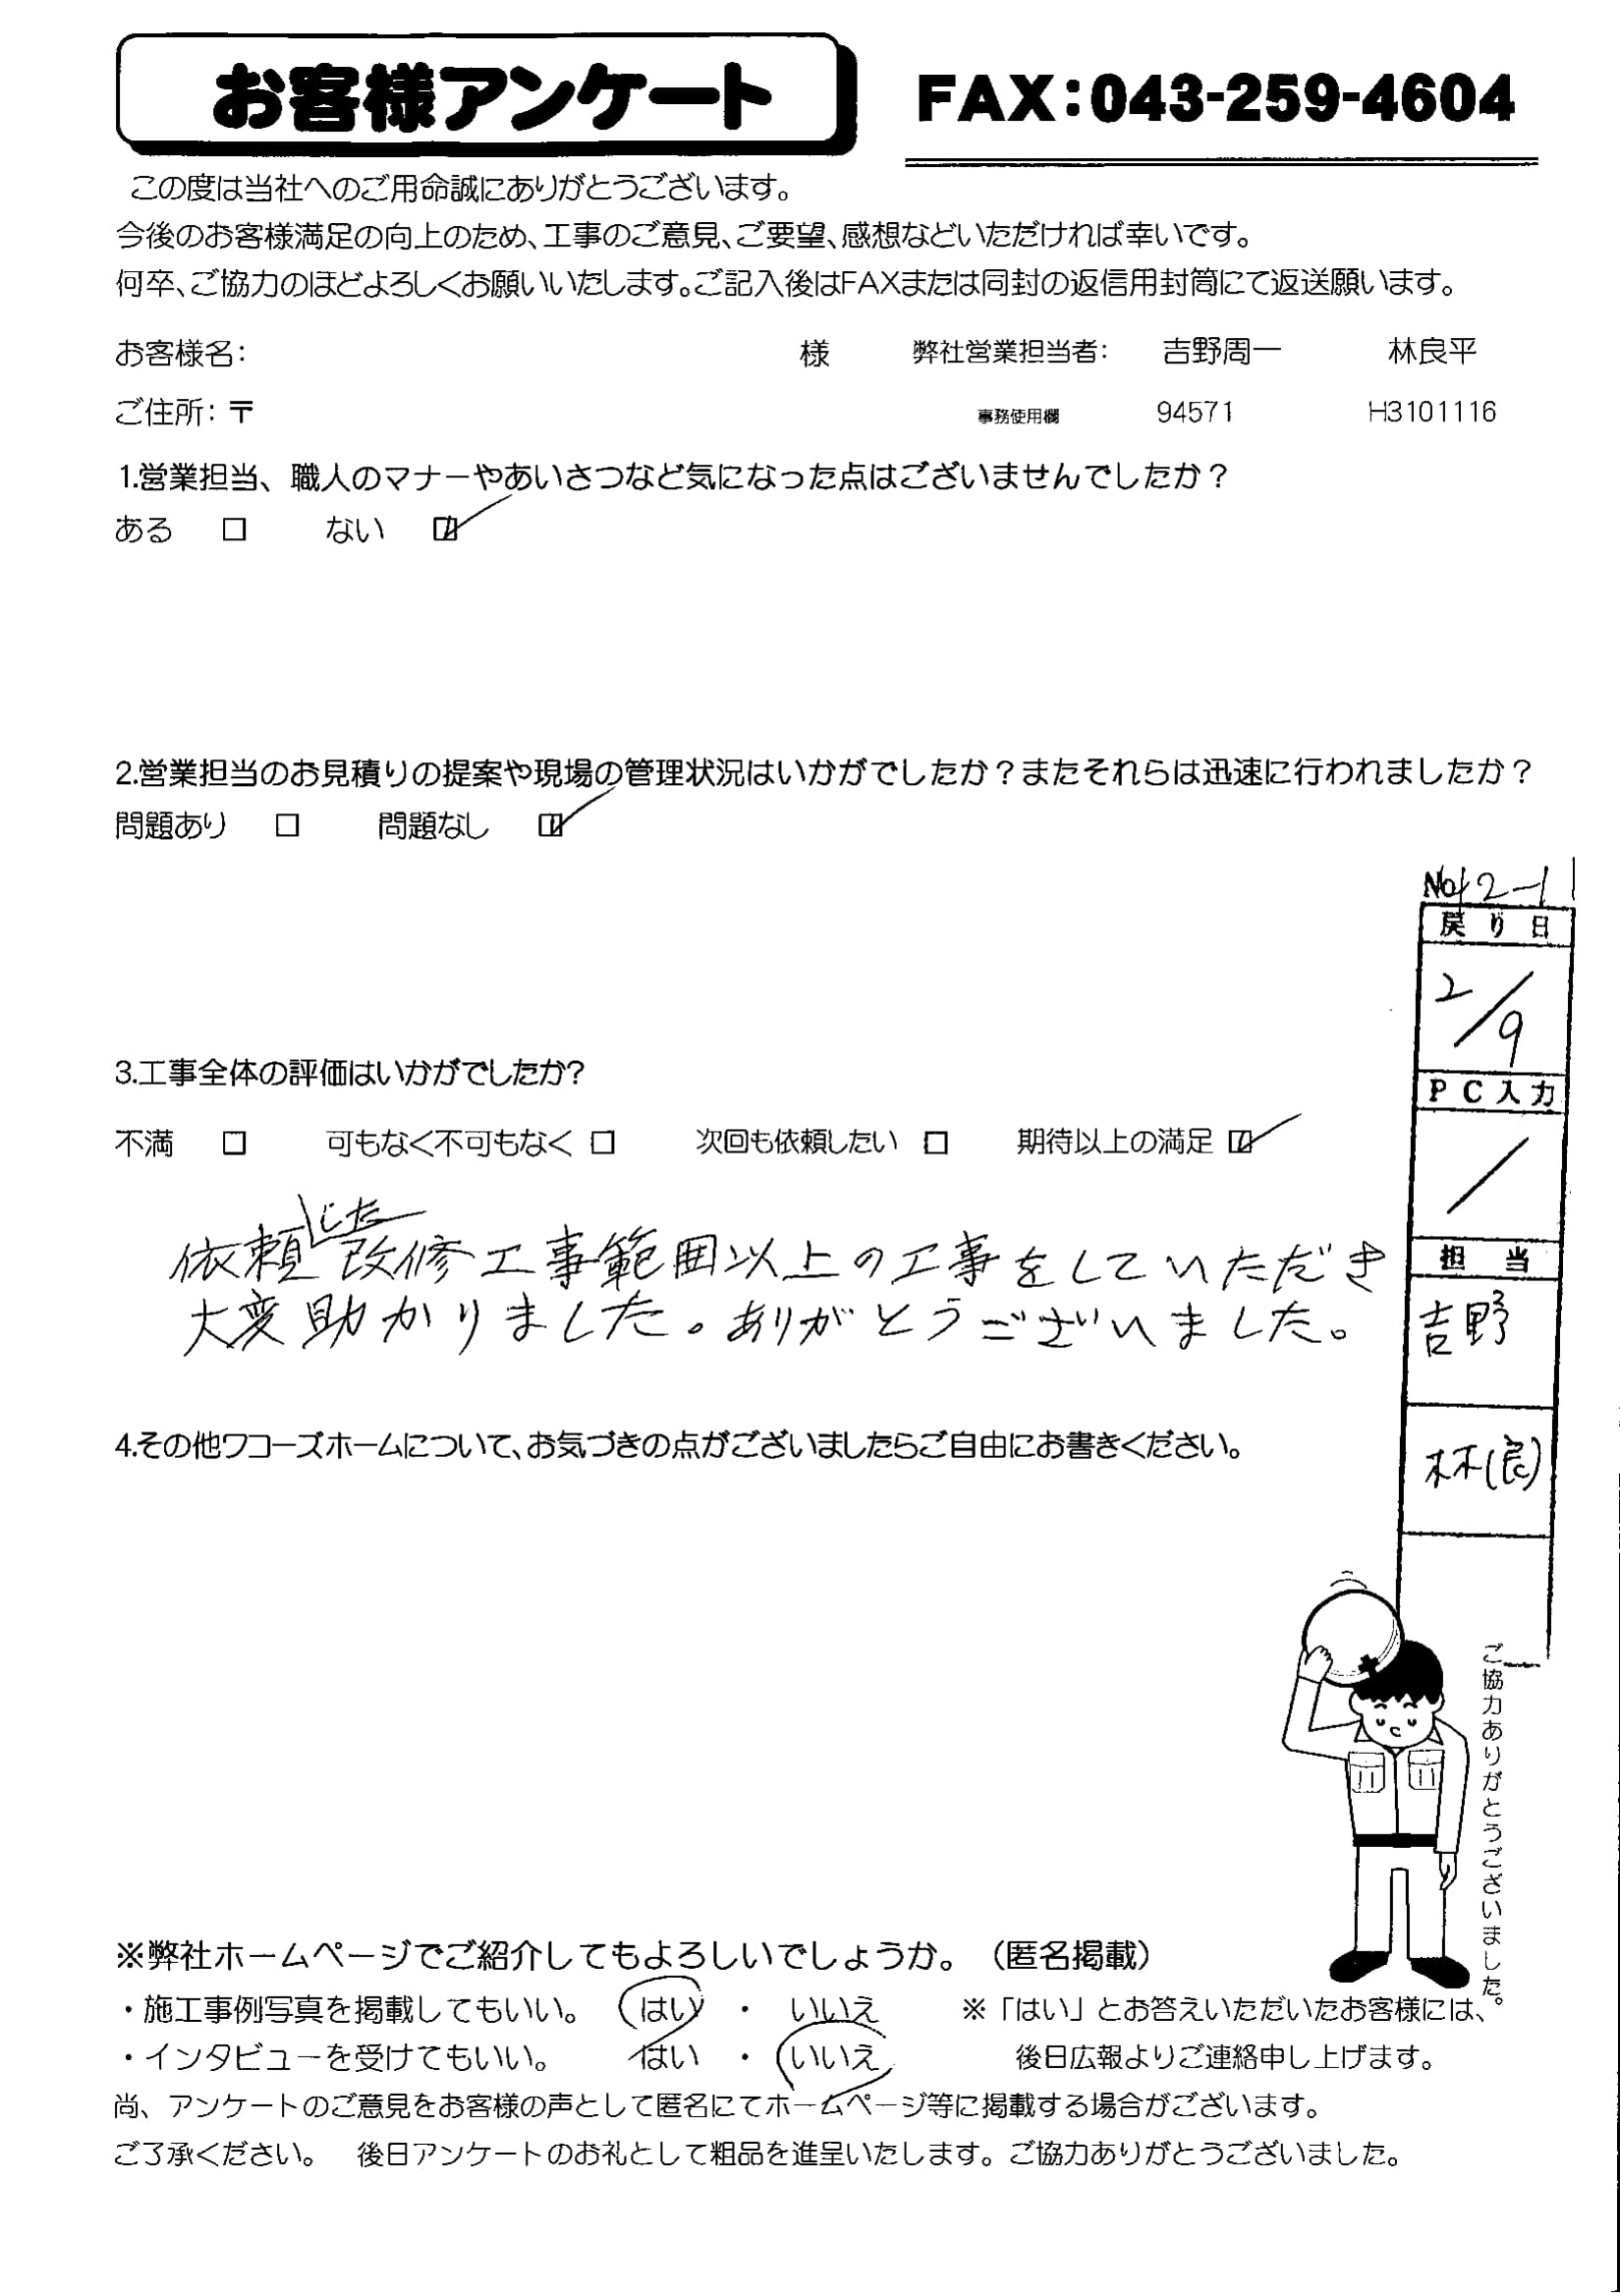 お客様アンケート
FAX:043-259-4604
この度は当社へのご用命誠にありがとうございます。
今後のお客様満足の向上のため、工事のご意見、ご要望、感想などいただければ幸いです。
何卒、ご協力のほどよろしくお願いいたします。ご記入後はFAXまたは同封の返信用封筒にて返送願います。
お客様名: 様 弊社営業担当者: 吉野周一 林良平
ご住所:〒 事務使用欄 94571 H3101116
1.営業担当、職人のマナーやあいさつなど気になった点はございませんでしたか？
ある □ ない ☑
2.営業担当のお見積りの提案や現場の管理状況はいかがでしたか？またそれらは迅速に行われましたか？
問題あり □ 問題なし ☑
No12-1
戻り日
2/9
PC入力
/
担当
吉野
林(良)
3.工事全体の評価はいかがでしたか?
不満 □ 可もなく不可もなく □ 次回も依頼したい □ 期待以上の満足 ☑
依頼した改修工事範囲以上の工事をしていただき
大変助かりました。ありがとうございました。
4.その他ワコーズホームについて、お気づきの点がございましたらご自由にお書きください。
ご協力ありがとうございました。
※弊社ホームページでご紹介してもよろしいでしょうか。（匿名掲載）
・施工事例写真を掲載してもいい。 はい ・ いいえ ※「はい」とお答えいただいたお客様には、
・インタビューを受けてもいい。 はい ・ いいえ 後日広報よりご連絡申し上げます。
尚、アンケートのご意見をお客様の声として匿名にてホームページ等に掲載する場合がございます。
ご了承ください。 後日アンケートのお礼として粗品を進呈いたします。ご協力ありがとうございました。